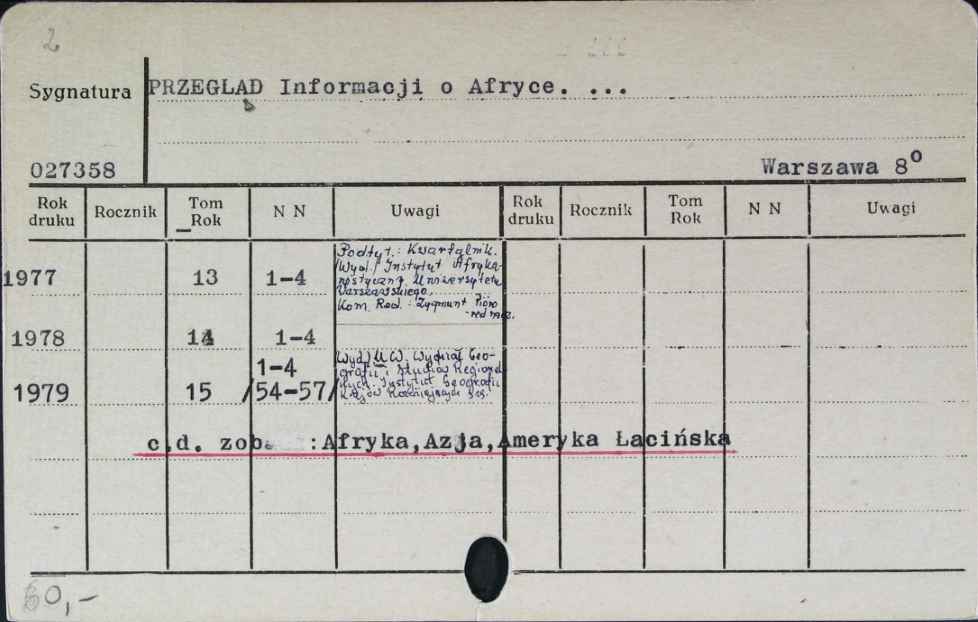 2
Sygnatura
PRZEGLĄD Informacji o Afryce. ...
027358
Warszawa 8°
Rok druku Rocznik Tom Rok N N Uwagi Rok druku Rocznik Tom Rok N N Uwagi
Podtyt.: Kwartalnik.
/Wyd./ Instytut Afryka-
nistyczny Uniwersytetu
Warszawskiego.
1977 13 1-4
Kom. Red.: Zygmunt Pióro
red nacz.
1978 14 1-4
1-4
Wyd. U.W. Wydział Geo-
grafii i Studiów Regional-
nych. Instytut Geografii
1979 15 /54-57/
Krajów Rozwijających się.
c.d. zob. :Afryka,Azja,Ameryka Łacińska
60,-